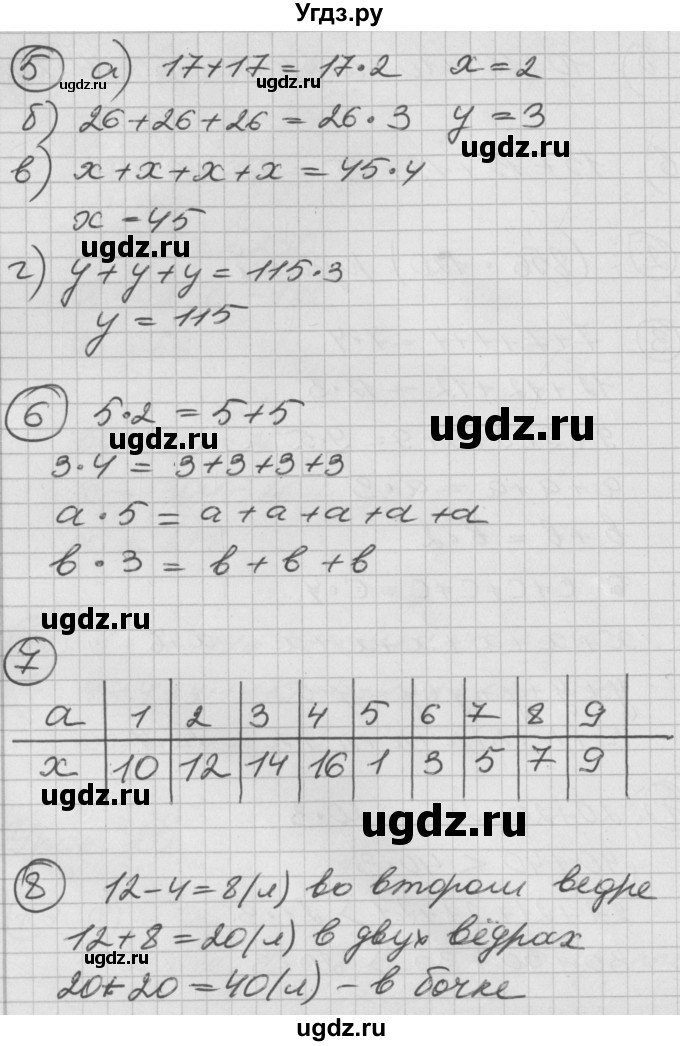 Угдз.ру
5 а) 17+17=17·2 x=2
ugdz.ru
б) 26+26+26=26·3 y=3
ugdz.ru
в) x+x+x+x=45·4
x=45
ugdz.ru
г) y+y+y=115·3
y=115
6 5·2=5+5
ugdz.ru
ugdz.ru
3·4=3+3+3+3
a·5=a+a+a+a+a
в·3=в+в+в
ugdz.ru
7
a 1 2 3 4 5 6 7 8 9
x 10 12 14 16 1 3 5 7 9
ugdz.ru
ugdz.ru
8 12-4=8(л) во втором ведре
ugdz.ru
12+8=20(л) в двух вёдрах
20+20=40(л) - в бочке
ugdz.ru